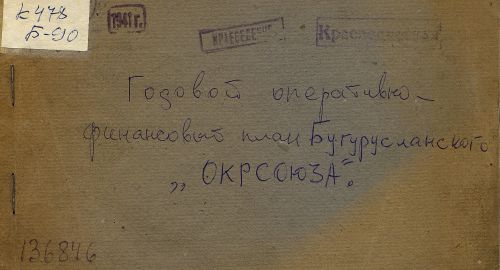 К 478
Б-90
1941 г.
КРАЕВЕДЕНИЕ
Краеведческая
Годовой оперативно-
финансовый план Бугурусланского
„ОКРСОЮЗА".
136846